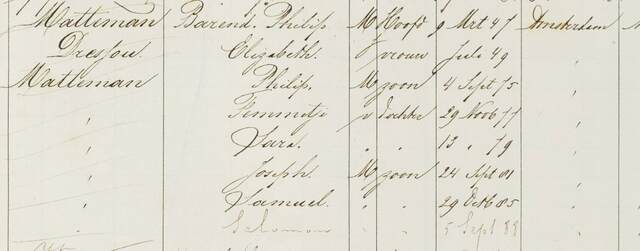 Matteman Barend Philip M Hoofd 9 Mrt 47 Amsterdam
Elizabeth V vrouw Julij 49 "
Matteman Philip M zoon 4 Sept 75 "
" Femmetje v dochter 29 Nov 77 "
" Sara " " 13 " 79 "
" Joseph M zoon 24 Sept 81 "
" Samuel " " 29 Oct 85 "
" Salomon " " 5 Sept 88